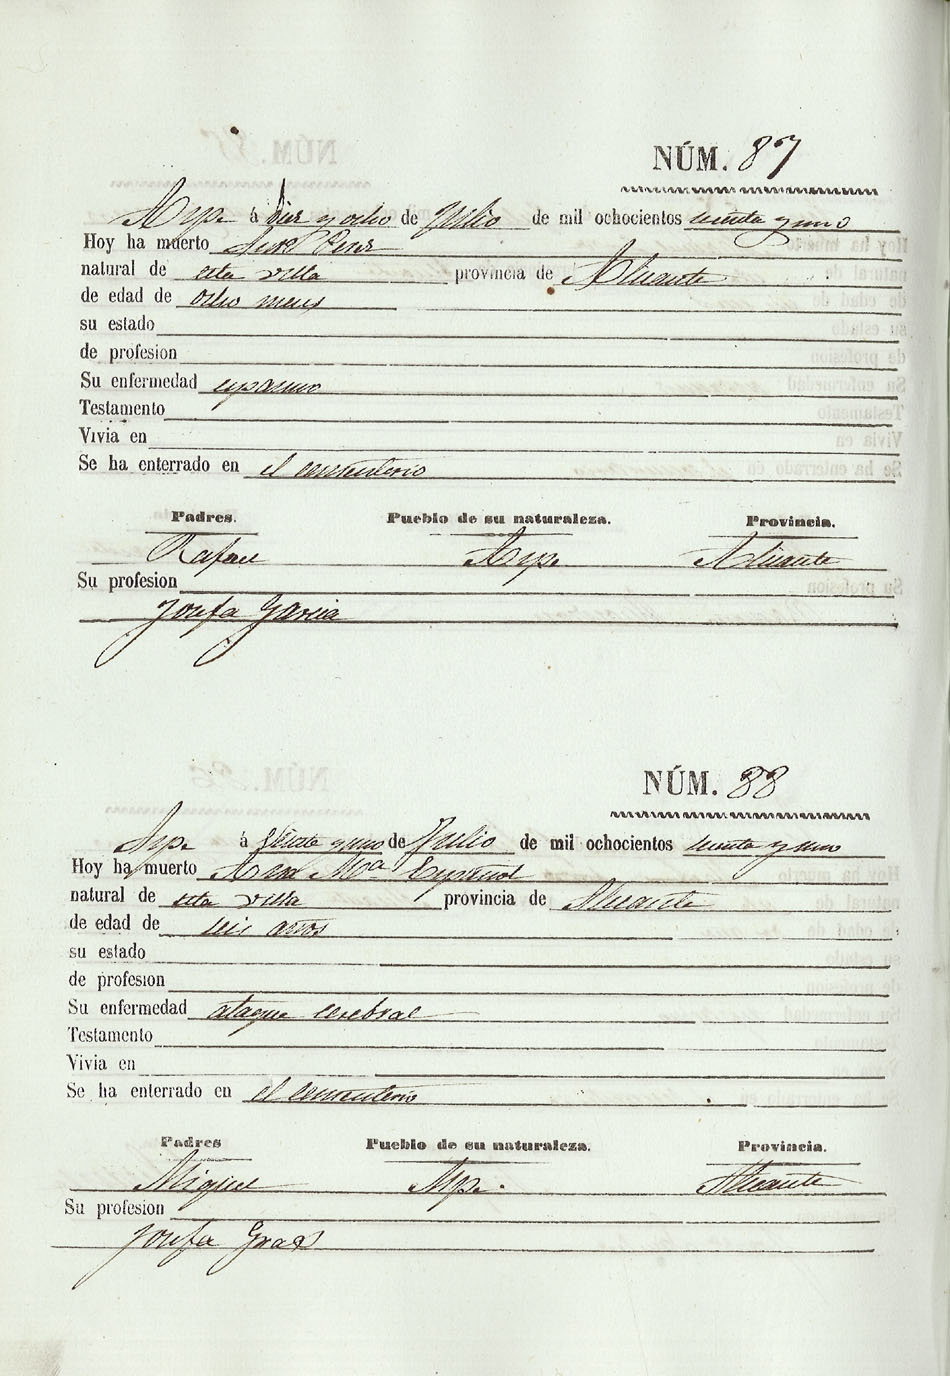 NÚM. 87
Aspe á diez y ocho de Julio de mil ochocientos treinta y uno
Hoy ha muerto José Perez
natural de esta villa provincia de Alicante
de edad de ocho meses
su estado
de profesion
Su enfermedad espasmo
Testamento
Vivia en
Se ha enterrado en el cementerio
Padres. Pueblo de su naturaleza. Provincia.
Rafael Aspe Alicante
Su profesion
Josefa Garcia
NÚM. 88
Aspe á y uno de Julio de mil ochocientos treinta y uno
Hoy ha muerto Ana Mª Español
natural de esta villa provincia de Alicante
de edad de seis años
su estado
de profesion
Su enfermedad ataque cerebral
Testamento
Vivia en
Se ha enterrado en el cementerio
Padres Pueblo de su naturaleza. Provincia.
Miguel Aspe. Alicante
Su profesion
Josefa Gras